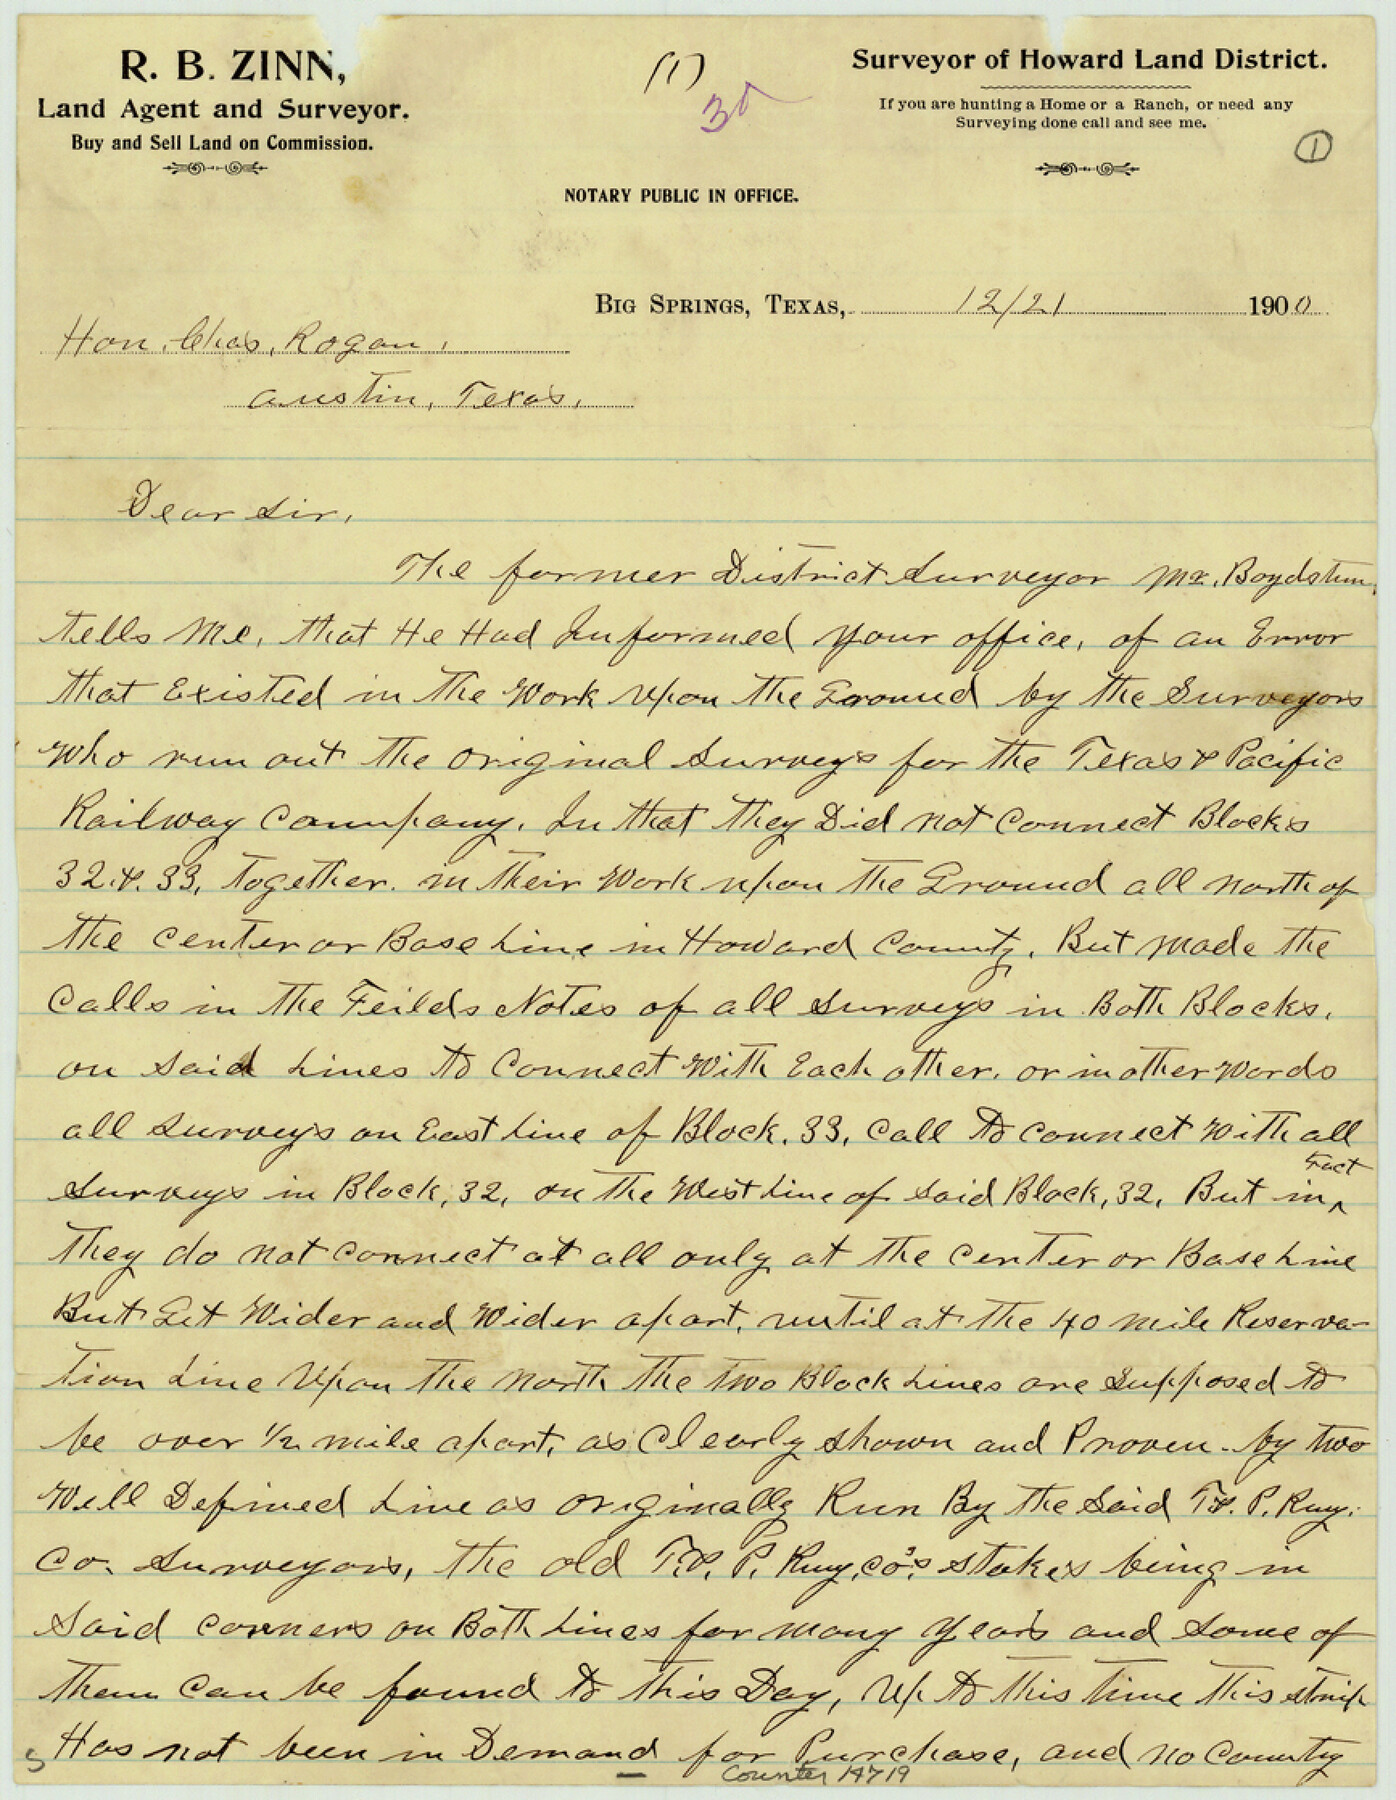 R. B. ZINN,
Land Agent and Surveyor.
Buy and Sell Land on Commission.
(1)
30
Surveyor of Howard Land District.
If you are hunting a Home or a Ranch, or need any
Surveying done call and see me.
1
NOTARY PUBLIC IN OFFICE.
BIG SPRINGS, TEXAS, 12/21 1900
Hon. Chas. Rogan,
Austin, Texas,
Dear Sir,
The former District Surveyor Mr. Boydstun,
tells me, that He Had Informed your office, of an Error
that Existed in the Work upon the Ground by the Surveyors
Who run out the original Surveys for the Texas & Pacific
Railway Company. In that they Did not Connect Blocks
32 & 33, together. in their Work upon the Ground all north of
the center or Base Line in Howard County. But made the
Calls in the Feilds Notes of all Surveys in Both Blocks,
on said Lines to Connect With Each other. or in other words
all Surveys on East Line of Block, 33, Call to connect With all
Surveys in Block, 32, on the West Line of said Block, 32, But in ^ Fact
they do not connect at all only at the center or Base Line
But Get Wider and Wider apart, until at the 40 mile Reserva-
tion Line Upon the North the two Block Lines are Supposed to
be over 1/2 mile apart, as Clearly shown and Proven - by two
Well Defined Line as originally Run By the Said T. & P. Rwy.
Co. Surveyors, the old T. & P. Rwy. Co's. stakes being in
Said corners on Both Lines for many years and some of
them can be found to this Day, Up to this time this strip
Has not been in Demand for Purchase, and no County
5
Counter 14719